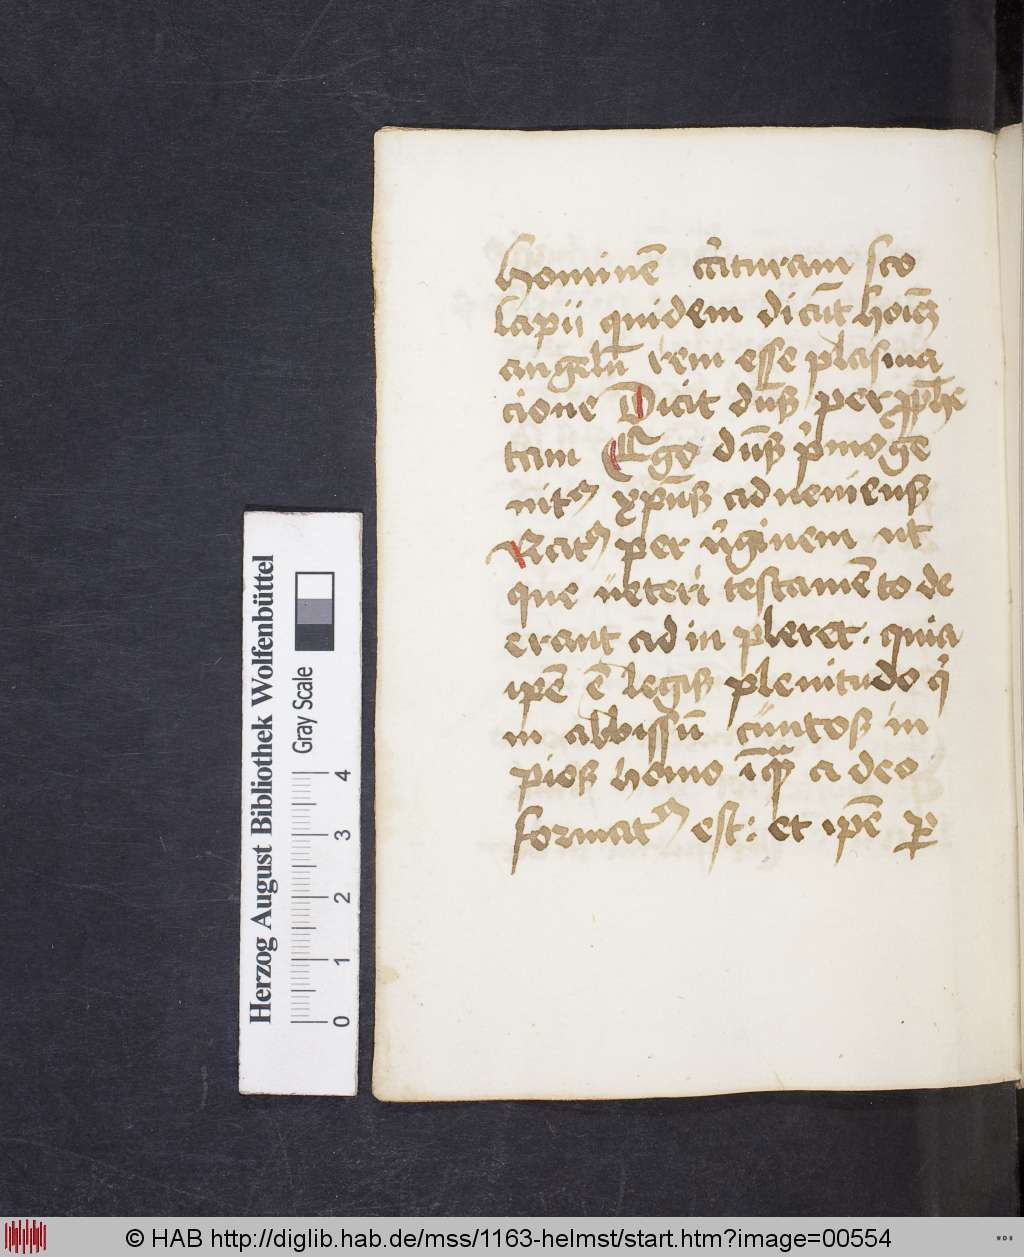 hominē c̄rituram sco
lapii quidem dicūt hoīes
angelū rem esse plasma
cione Dicit dūs per ꝓphe
tam Ego dūs p̄moge
nitꝰ xpūs adueniens
Natꝰ per ūginem ut
que ueteri testamēto de
erant ad in pleret. quia
ipē ē legis plenitudo q̄
in abbissū cūntos in
pios homo a deo
formatꝰ est: et ipē ꝑ
Herzog August Bibliothek Wolfenbüttel
Gray Scale
0 1 2 3 4
© HAB http://diglib.hab.de/mss/1163-helmst/start.htm?image=00554